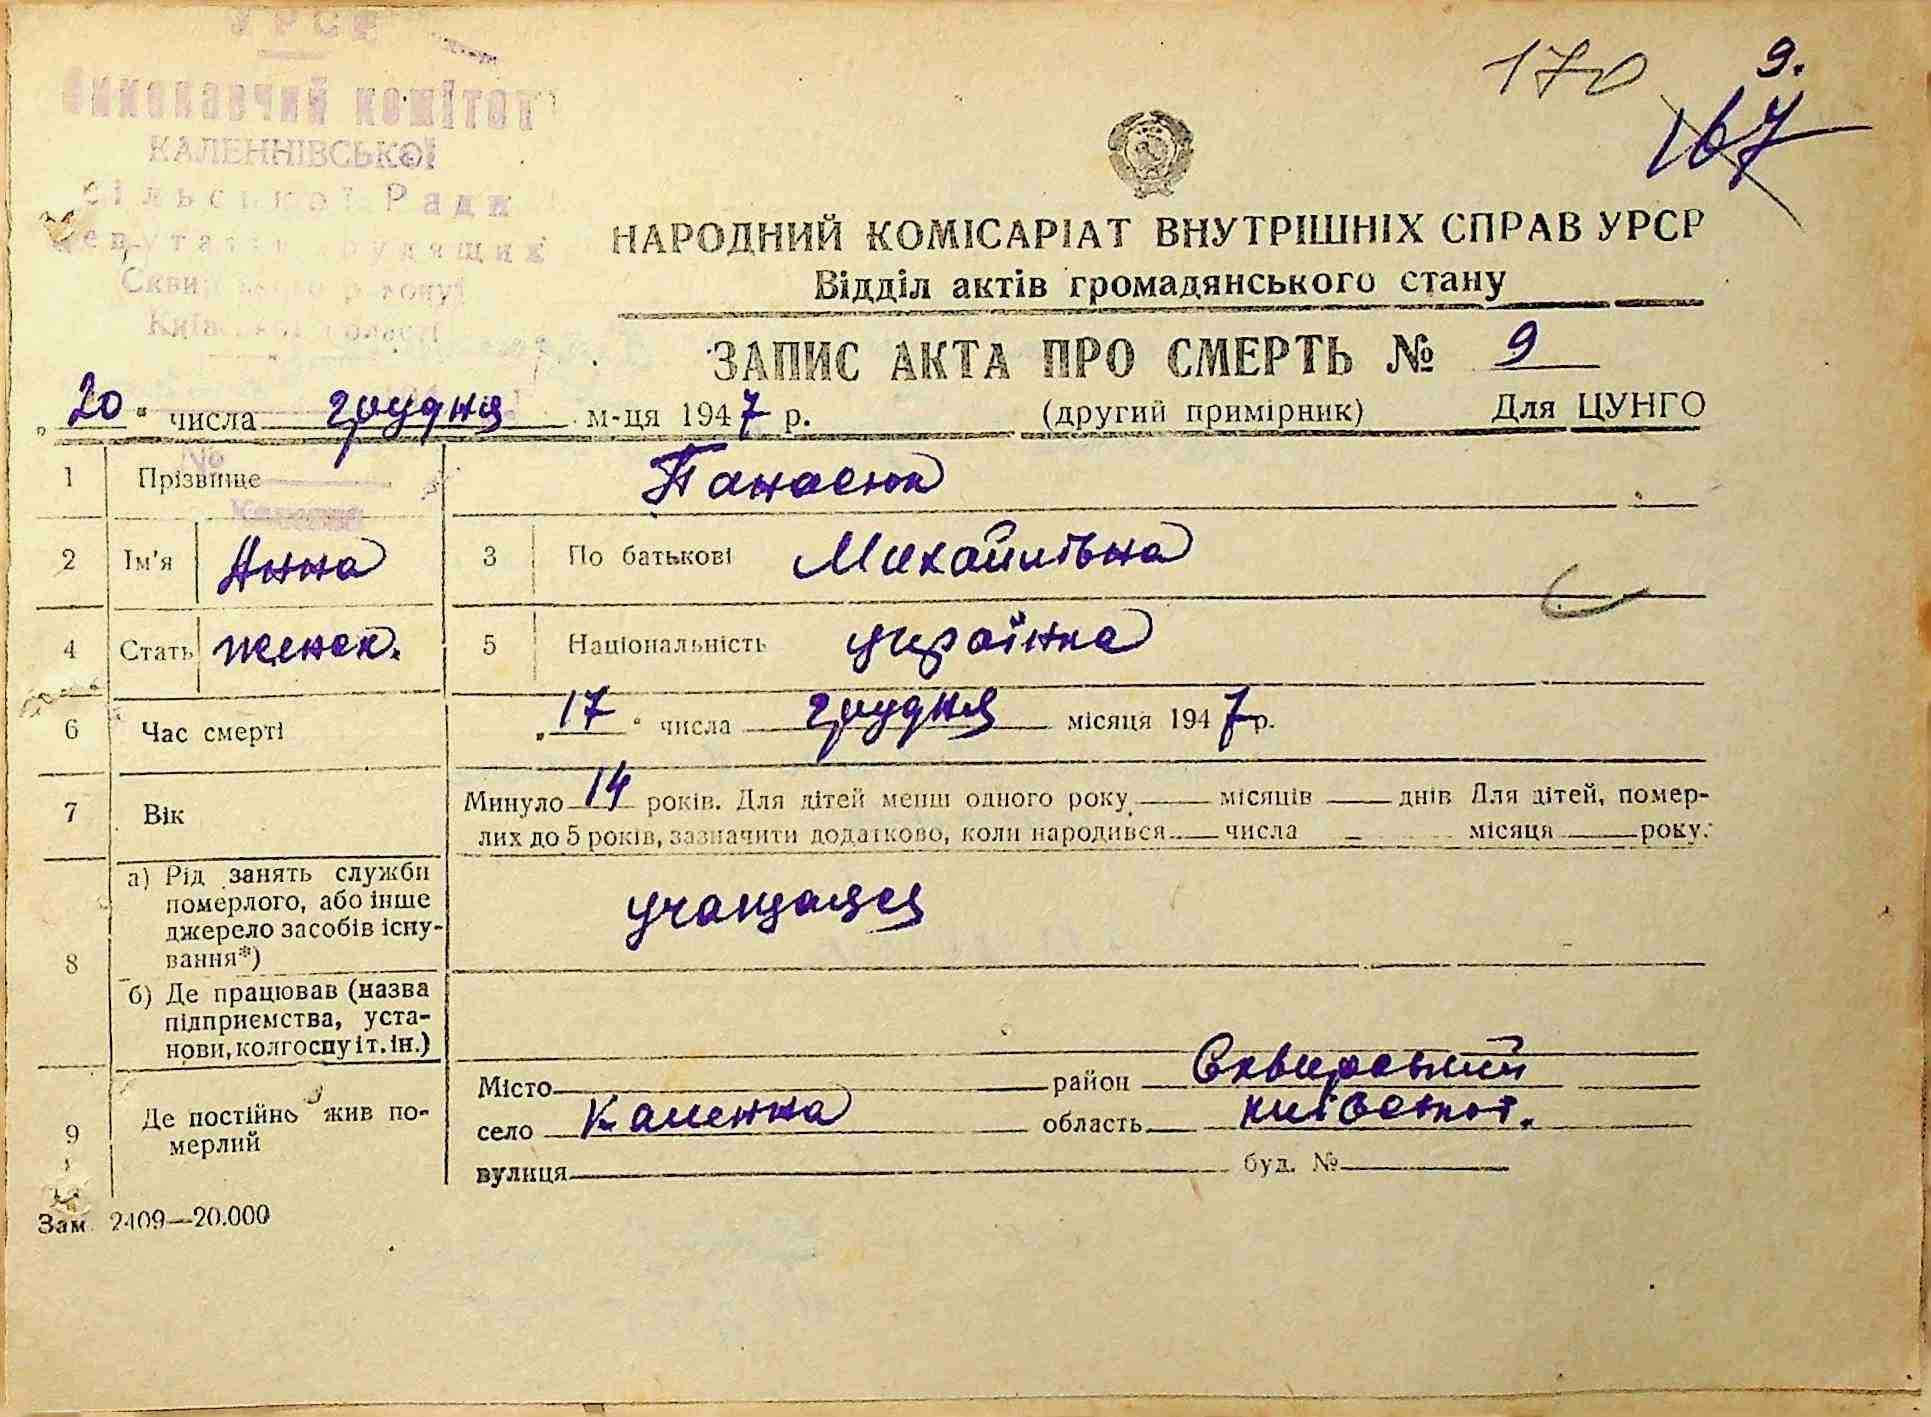 УРСР
Виконавчий комітет
КАЛЕННІВСЬКОЇ
сільської Ради
депутатів трудящих
Сквирського району
Київської області
170
9.
167
НАРОДНИЙ КОМІСАРІАТ ВНУТРІШНІХ СПРАВ УРСР
Відділ актів громадянського стану
ЗАПИС АКТА ПРО СМЕРТЬ № 9
„20“ числа грудня м-ця 1947 р. (другий примірник) Для ЦУНГО
1 Прізвище Панасюк
2 Ім'я Анна 3 По батькові Михайлівна
4 Стать женск. 5 Національність українка
6 Час смерті „17“ числа грудня місяця 1947р.
7 Вік Минуло 14 років. Для дітей менш одного року місяців днів Для дітей, помер-
лих до 5 років, зазначити додатково, коли народився числа місяця року.
8 а) Рід занять служби
померлого, або інше
джерело засобів існу-
вання*) учащаяся
б) Де працював (назва
підприємства, уста-
нови, колгоспу і т. ін.)
9 Де постійно жив по-
мерлий
Місто район Сквирський
село Каленна область київськ.
вулиця буд. №
Зам. 2409—20.000